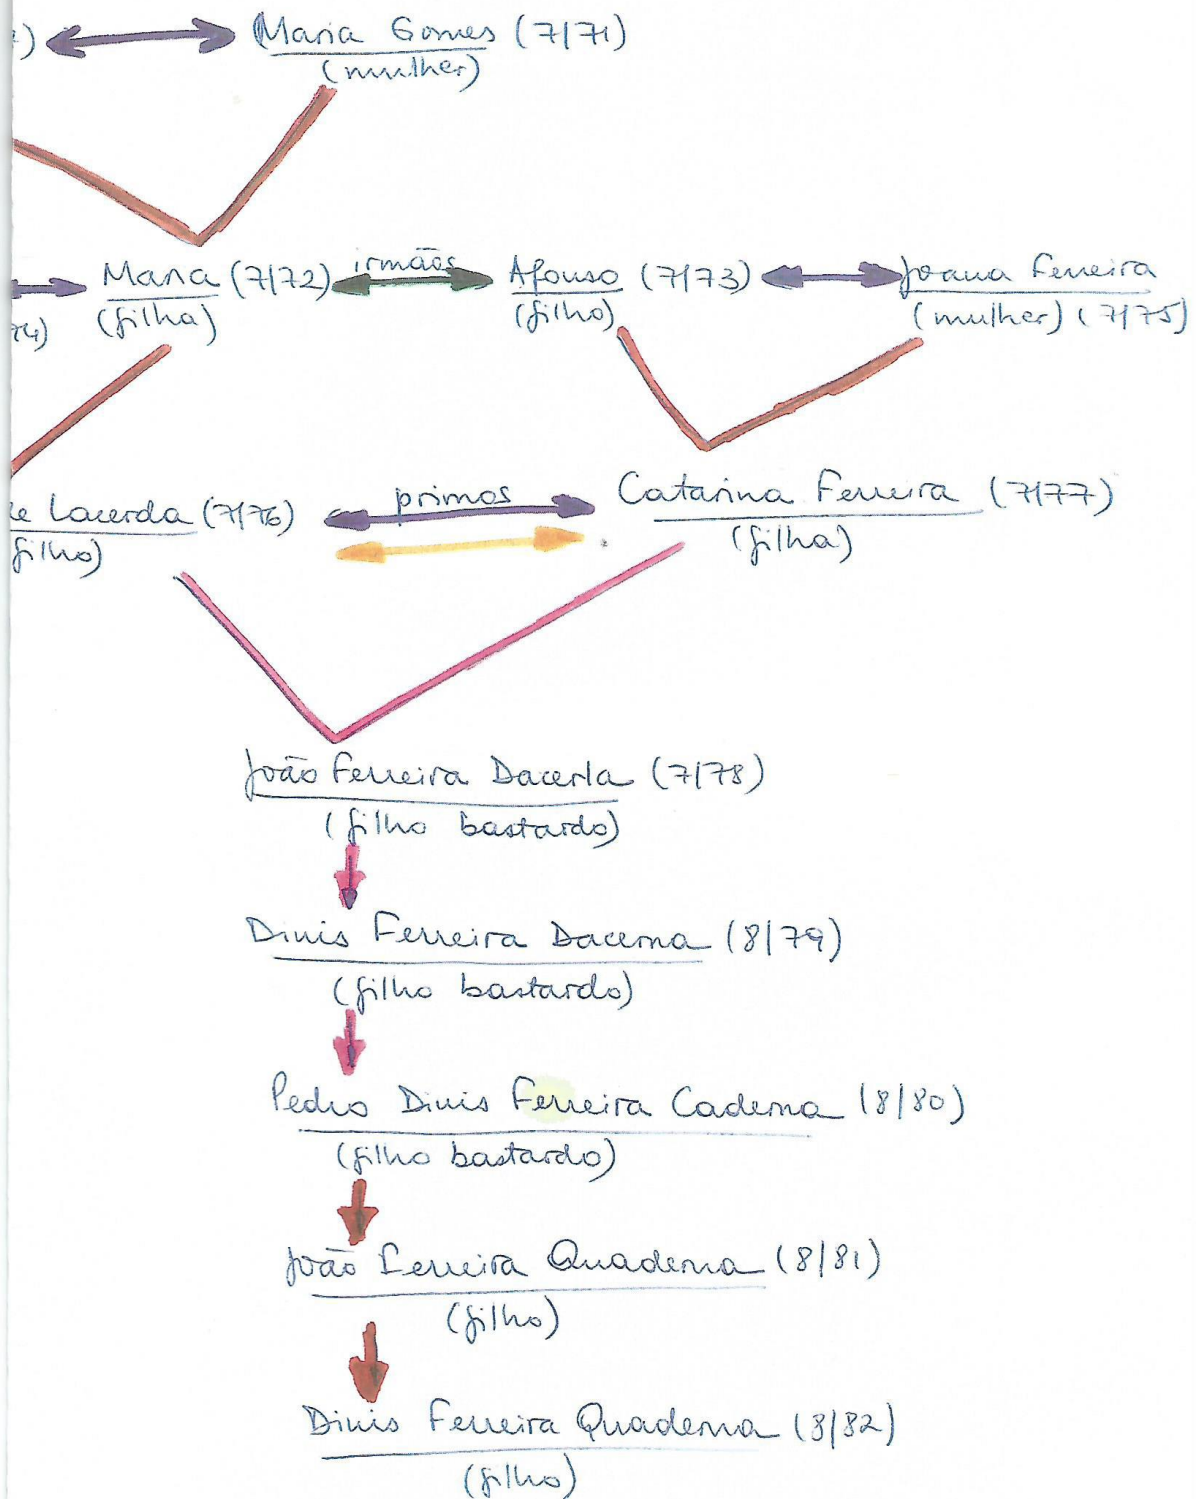 ) Maria Gomes (7/71)
(mulher)
Maria (7/72) irmãos Afonso (7/73) Joana Ferreira
74) (filha) (filho) (mulher) (7/75)
de Lacerda (7/76) primos Catarina Ferreira (7/77)
filho) (filha)
João Ferreira Dacerla (7/78)
(filho bastardo)
Dinis Ferreira Dacerna (8/79)
(filho bastardo)
Pedro Dinis Ferreira Caderna (8/80)
(filho bastardo)
João Ferreira Quaderna (8/81)
(filho)
Dinis Ferreira Quaderna (8/82)
(filho)